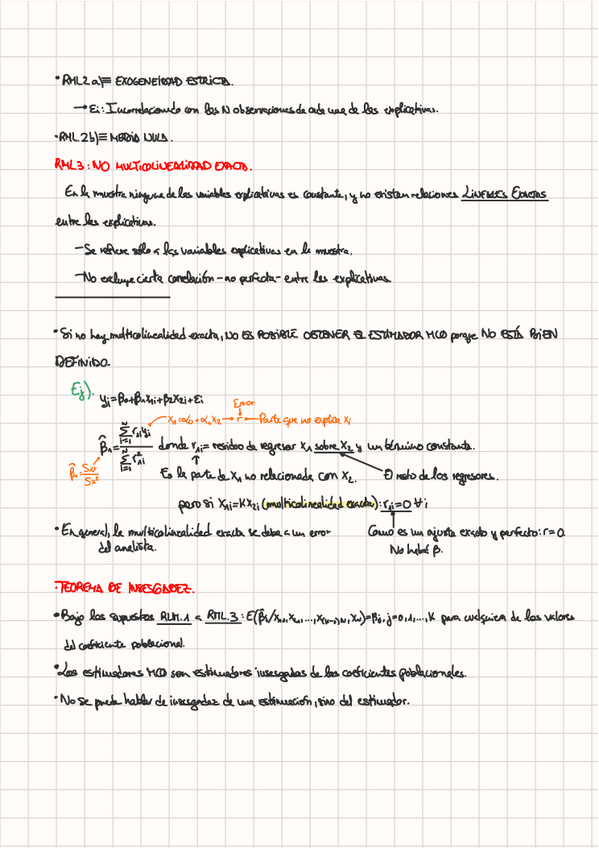 • RML2 a)≡ EXOGENEIDAD ESTRICTA.
→ Ei: Incorrelacionado con las N observaciones de cada una de las explicativas.
• RML 2b)≡ MEDIA NULA.
RML3: NO MULTICOLINEALIDAD EXACTA.
En la muestra ninguna de las variables explicativas es constante, y no existen relaciones LINEALES EXACTAS
entre las explicativas.
– Se refiere sólo a las variables explicativas en la muestra.
– No excluye cierta correlación – no perfecta – entre las explicativas
• Si no hay multicolinealidad exacta, NO ES POSIBLE OBTENER EL ESTIMADOR MCO porque NO ESTÁ BIEN
DEFINIDO.
Ej). yi=β0+β1x1i+β2x2i+εi
Error
x1=α0+α1x2 → r → Parte que no explica xi
β̂1= Σ r1i yi / Σ r1i² donde r1i= residuo de regresar x1 sobre x2 y un término constante.
Es la parte de x1 no relacionada con x2. O resto de los regresores.
pero si x1i=Kx2i (multicolinealidad exacta): r1i=0 ∀i
• En general, la multicolinealidad exacta se debe a un error
del analista.
Como es un ajuste exacto y perfecto: r=0.
No habrá β.
• TEOREMA DE INSESGADEZ.
• Bajo los supuestos RLM.1 a RML.3: j=0,1,...,K para cualquiera de los valores
del coeficiente poblacional.
• Los estimadores MCO son estimadores insesgados de los coeficientes poblacionales.
• No se puede hablar de insesgadez de una estimación, sino del estimador.